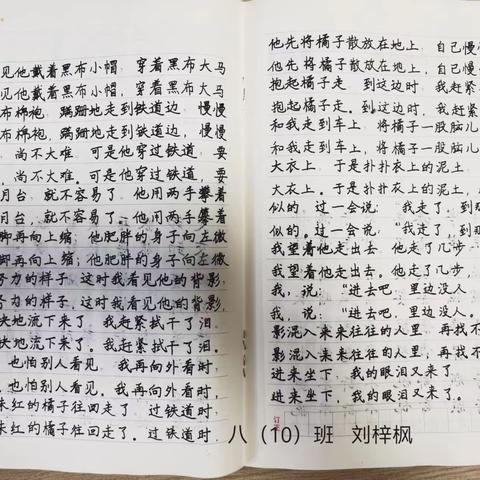 见他戴着黑布小帽，穿着黑布大马
见他戴着黑布小帽，穿着黑布大马
布棉袍，蹒跚地走到铁道边，慢慢
布棉袍，蹒跚地走到铁道边，慢慢
，尚不大难。可是他穿过铁道，要
，尚不大难。可是他穿过铁道，要
月台，就不容易了。他用两手攀着
月台，就不容易了。他用两手攀着
脚再向上缩；他肥胖的身子向左微
脚再向上缩；他肥胖的身子向左微
努力的样子，这时我看见他的背影，
努力的样子，这时我看见他的背影，
快地流下来了。我赶紧拭干了泪。
快地流下来了。我赶紧拭干了泪。
，也怕别人看见。我再向外看时，
，也怕别人看见。我再向外看时，
朱红的橘子往回走了。过铁道时，
朱红的橘子往回走了。过铁道时，
他先将橘子散放在地上，自己慢
他先将橘子散放在地上，自己慢
抱起橘子走。到这边时，我赶紧
抱起橘子走。到这边时，我赶紧
和我走到车上，将橘子一股脑儿
和我走到车上，将橘子一股脑儿
大衣上。于是扑扑衣上的泥土，
大衣上。于是扑扑衣上的泥土，
似的。过一会说：“我走了，到那
似的。过一会说：“我走了，到那
我望着他走出去。他走了几步，
我望着他走出去。他走了几步，
我，说：“进去吧，里边没人。
我，说：“进去吧，里边没人。
影混入来来往往的人里，再找不
影混入来来往往的人里，再找不
进来坐下，我的眼泪又来了。
进来坐下，我的眼泪又来了。
八（10）班 刘梓枫